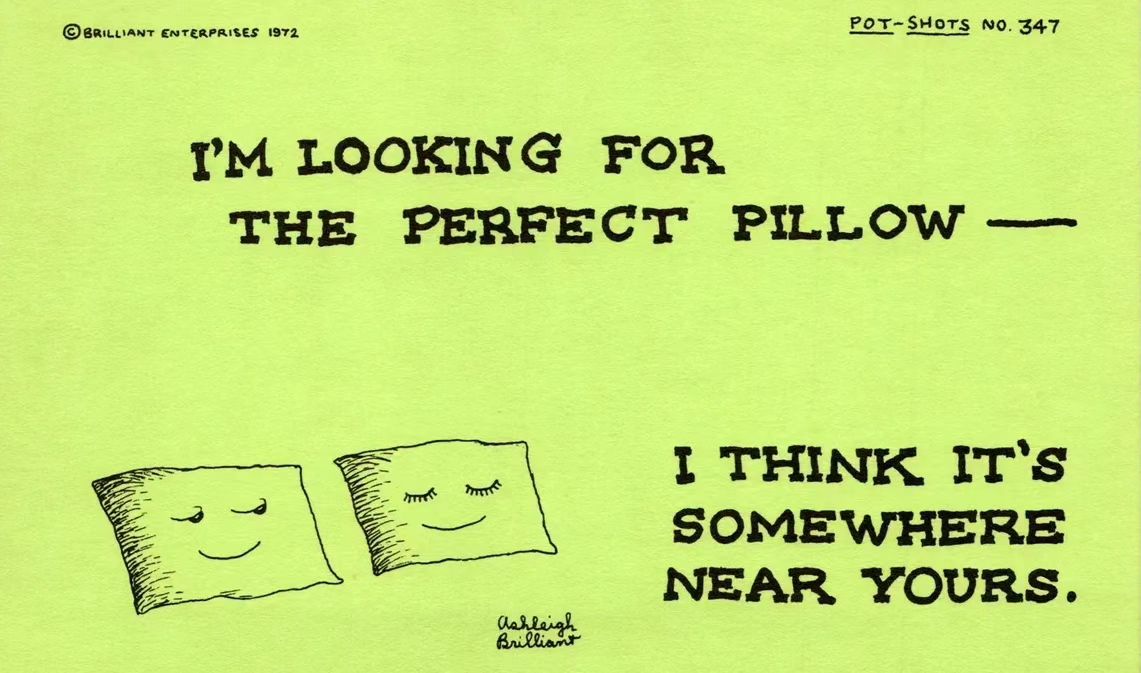 ©BRILLIANT ENTERPRISES 1972
POT-SHOTS NO. 347
I'M LOOKING FOR
THE PERFECT PILLOW —
I THINK IT'S
SOMEWHERE
NEAR YOURS.
Ashleigh
Brilliant